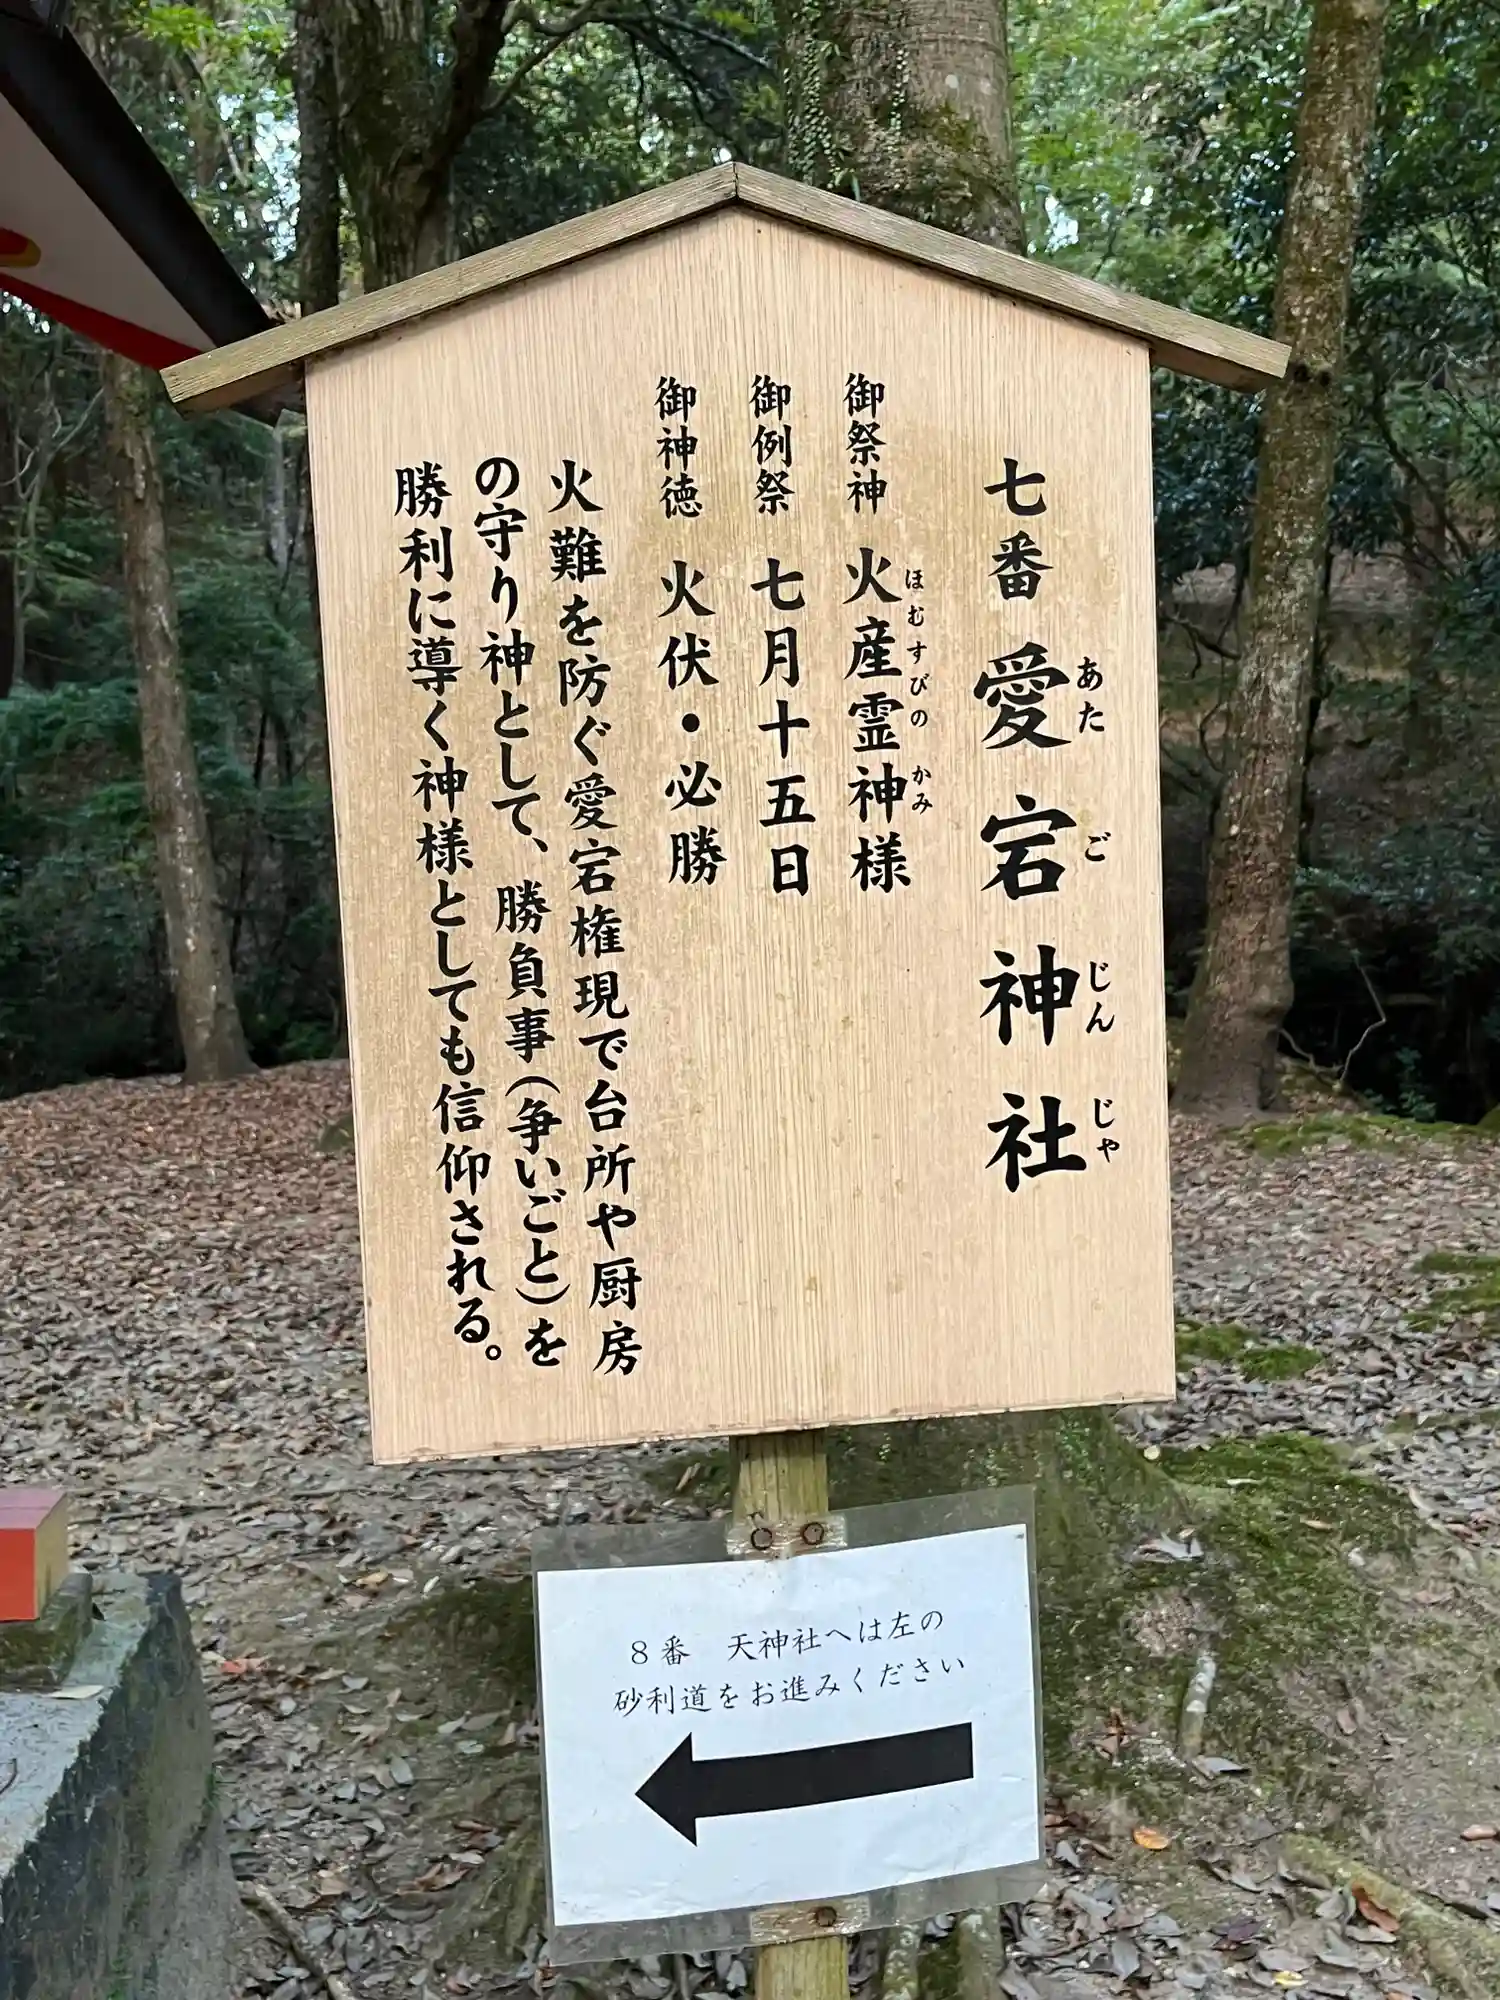 七番 愛宕神社
あたごじんじゃ
御祭神 火産霊神様
ほむすびのかみ
御例祭 七月十五日
御神徳 火伏・必勝
火難を防ぐ愛宕権現で台所や厨房
の守り神として、勝負事(争いごと)を
勝利に導く神様としても信仰される。
8番 天神社へは左の
砂利道をお進みください